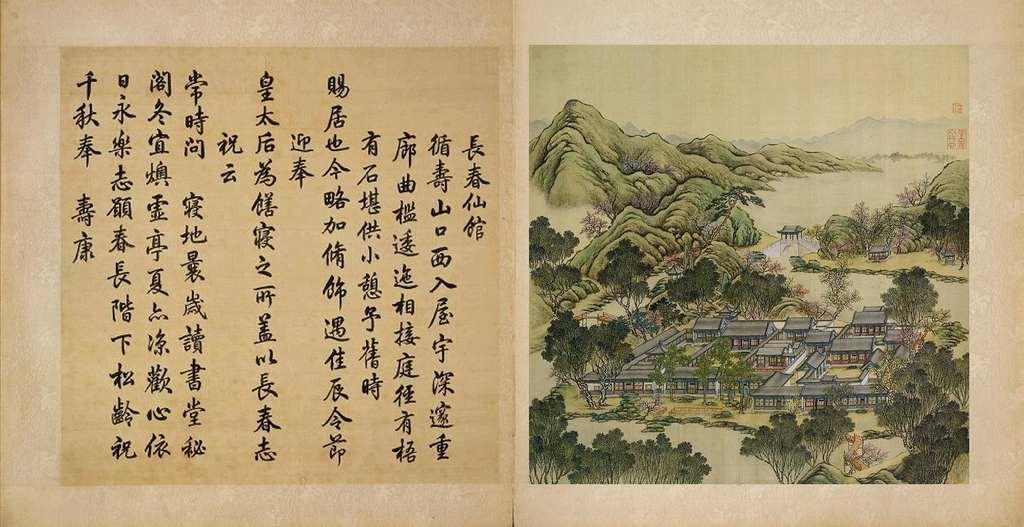 長春仙館
循壽山口西入屋宇深邃重
廊曲檻逶迤相接庭徑有梧
有石堪供小憩予舊時
賜居也今略加脩飾遇佳辰令節
迎奉
皇太后為饍寢之所蓋以長春志
祝云
常時問 寢地曩歲讀書堂秘
閣冬宜燠靈亭夏亦涼歡心依
日永樂志願春長階下松齡祝
千秋奉 壽康